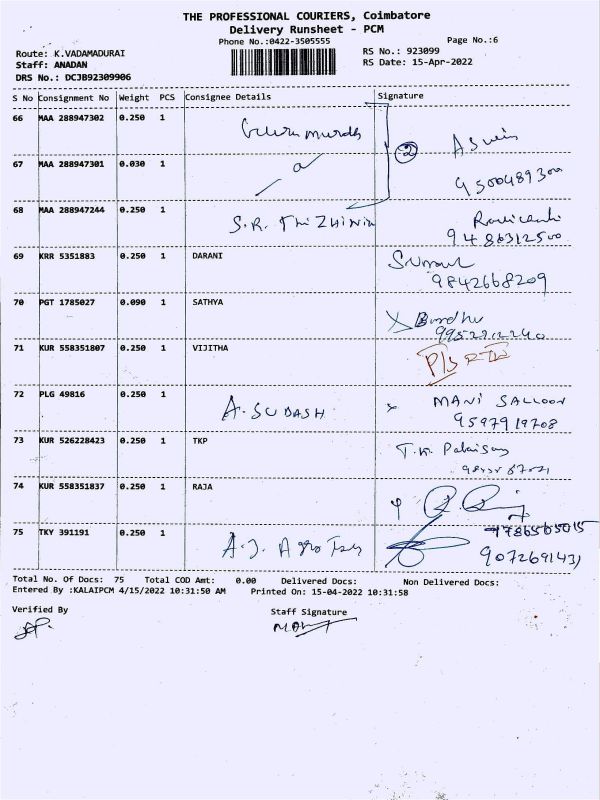 THE PROFESSIONAL COURIERS, Coimbatore
Delivery Runsheet - PCM
Phone No.:0422-3505555
Page No.:6
Route: K.VADAMADURAI
RS No.: 923099
Staff: ANADAN
RS Date: 15-Apr-2022
DRS No.: DCJB92309906
S No Consignment No Weight PCS Consignee Details Signature
66 MAA 288947302 0.250 1
67 MAA 288947301 0.030 1
2
9500489300
68 MAA 288947244 0.250 1 S.R.
9486312500
69 KRR 5351883 0.250 1 DARANI
9842668209
70 PGT 1785027 0.090 1 SATHYA
71 KUR 558351807 0.250 1 VIJITHA
72 PLG 49816 0.250 1 A. SUDASH x MANI SALLOON
9597919708
73 KUR 526228423 0.250 1 TKP T.K.
74 KUR 558351837 0.250 1 RAJA
75 TKY 391191 0.250 1 A.J. Agro
Total No. Of Docs: 75 Total COD Amt: 0.00 Delivered Docs: Non Delivered Docs:
Entered By :KALAIPCM 4/15/2022 10:31:50 AM Printed On: 15-04-2022 10:31:58
Verified By Staff Signature